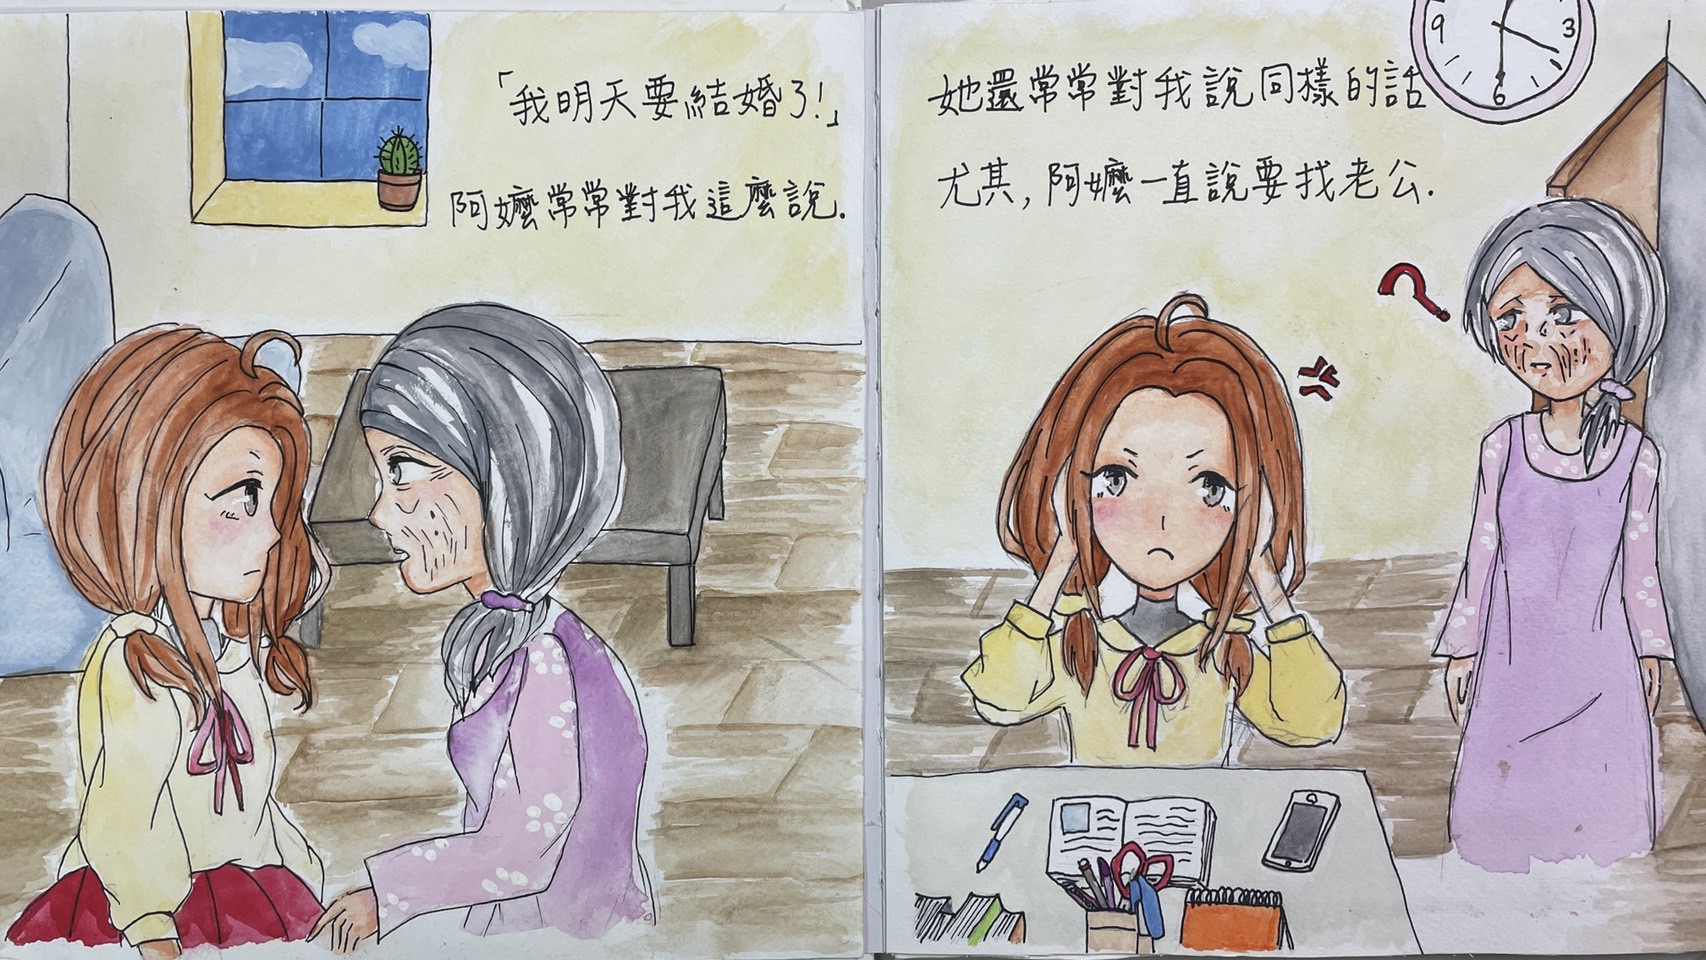 「我明天要結婚了!」
阿嬤常常對我這麼說.
她還常常對我說同樣的話
尤其,阿嬤一直說要找老公.
9
3
6
?